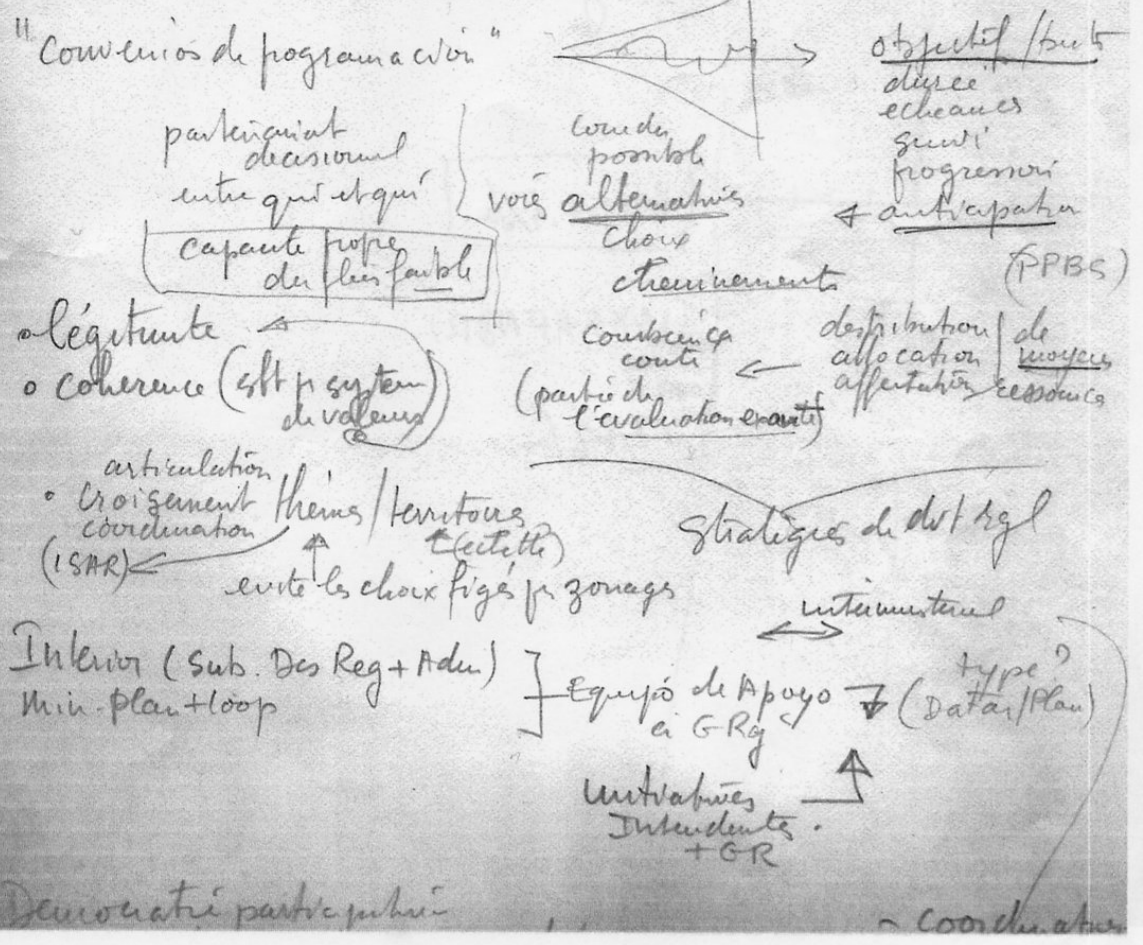 "Convenios de programación"
objectif/buts
durée
echeances
suivi
progression
anticipation
(PPBS)
partenariat
decisionnel
entre qui et qui
capacite propre
des faible
possible
voies alternatives
choix
cheminements
légitimite
coherence ( system
de valeurs)
conscience
coute
(partie de
l'évaluation exante)
distribution
allocation
affectation
de
moyens
ressources
articulation
croisement
coordination
thèmes/territoires
(echelle)
(ISAR)
evite les choix figés pr zonages
stratégies de dvt rgl
interministeriel
Interior (Sub. Des Reg + Adm)
Min. Plan + Coop
Equipo de Apoyo
a GRg
type?
(Datar/Plan)
Initiatives
Intendentes
+ GR
Democratie participative
- coordination